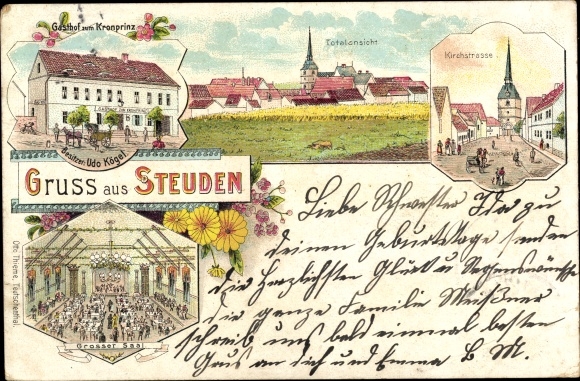 Gasthof zum Kronprinz
Besitzer: Udo Kögel
Totalansicht
Kirchstrasse.
GRUSS AUS STEUDEN
Grosser Saal
Otto Thieme, Teutschenthal.
Liebe Schwester Ida zu
deinen Geburtstage senden
die Herzlichsten Glück u Segenswünsche
die ganze Familie Meißner
schreib uns bald einmal besten
Grus an dich und Emma B M.